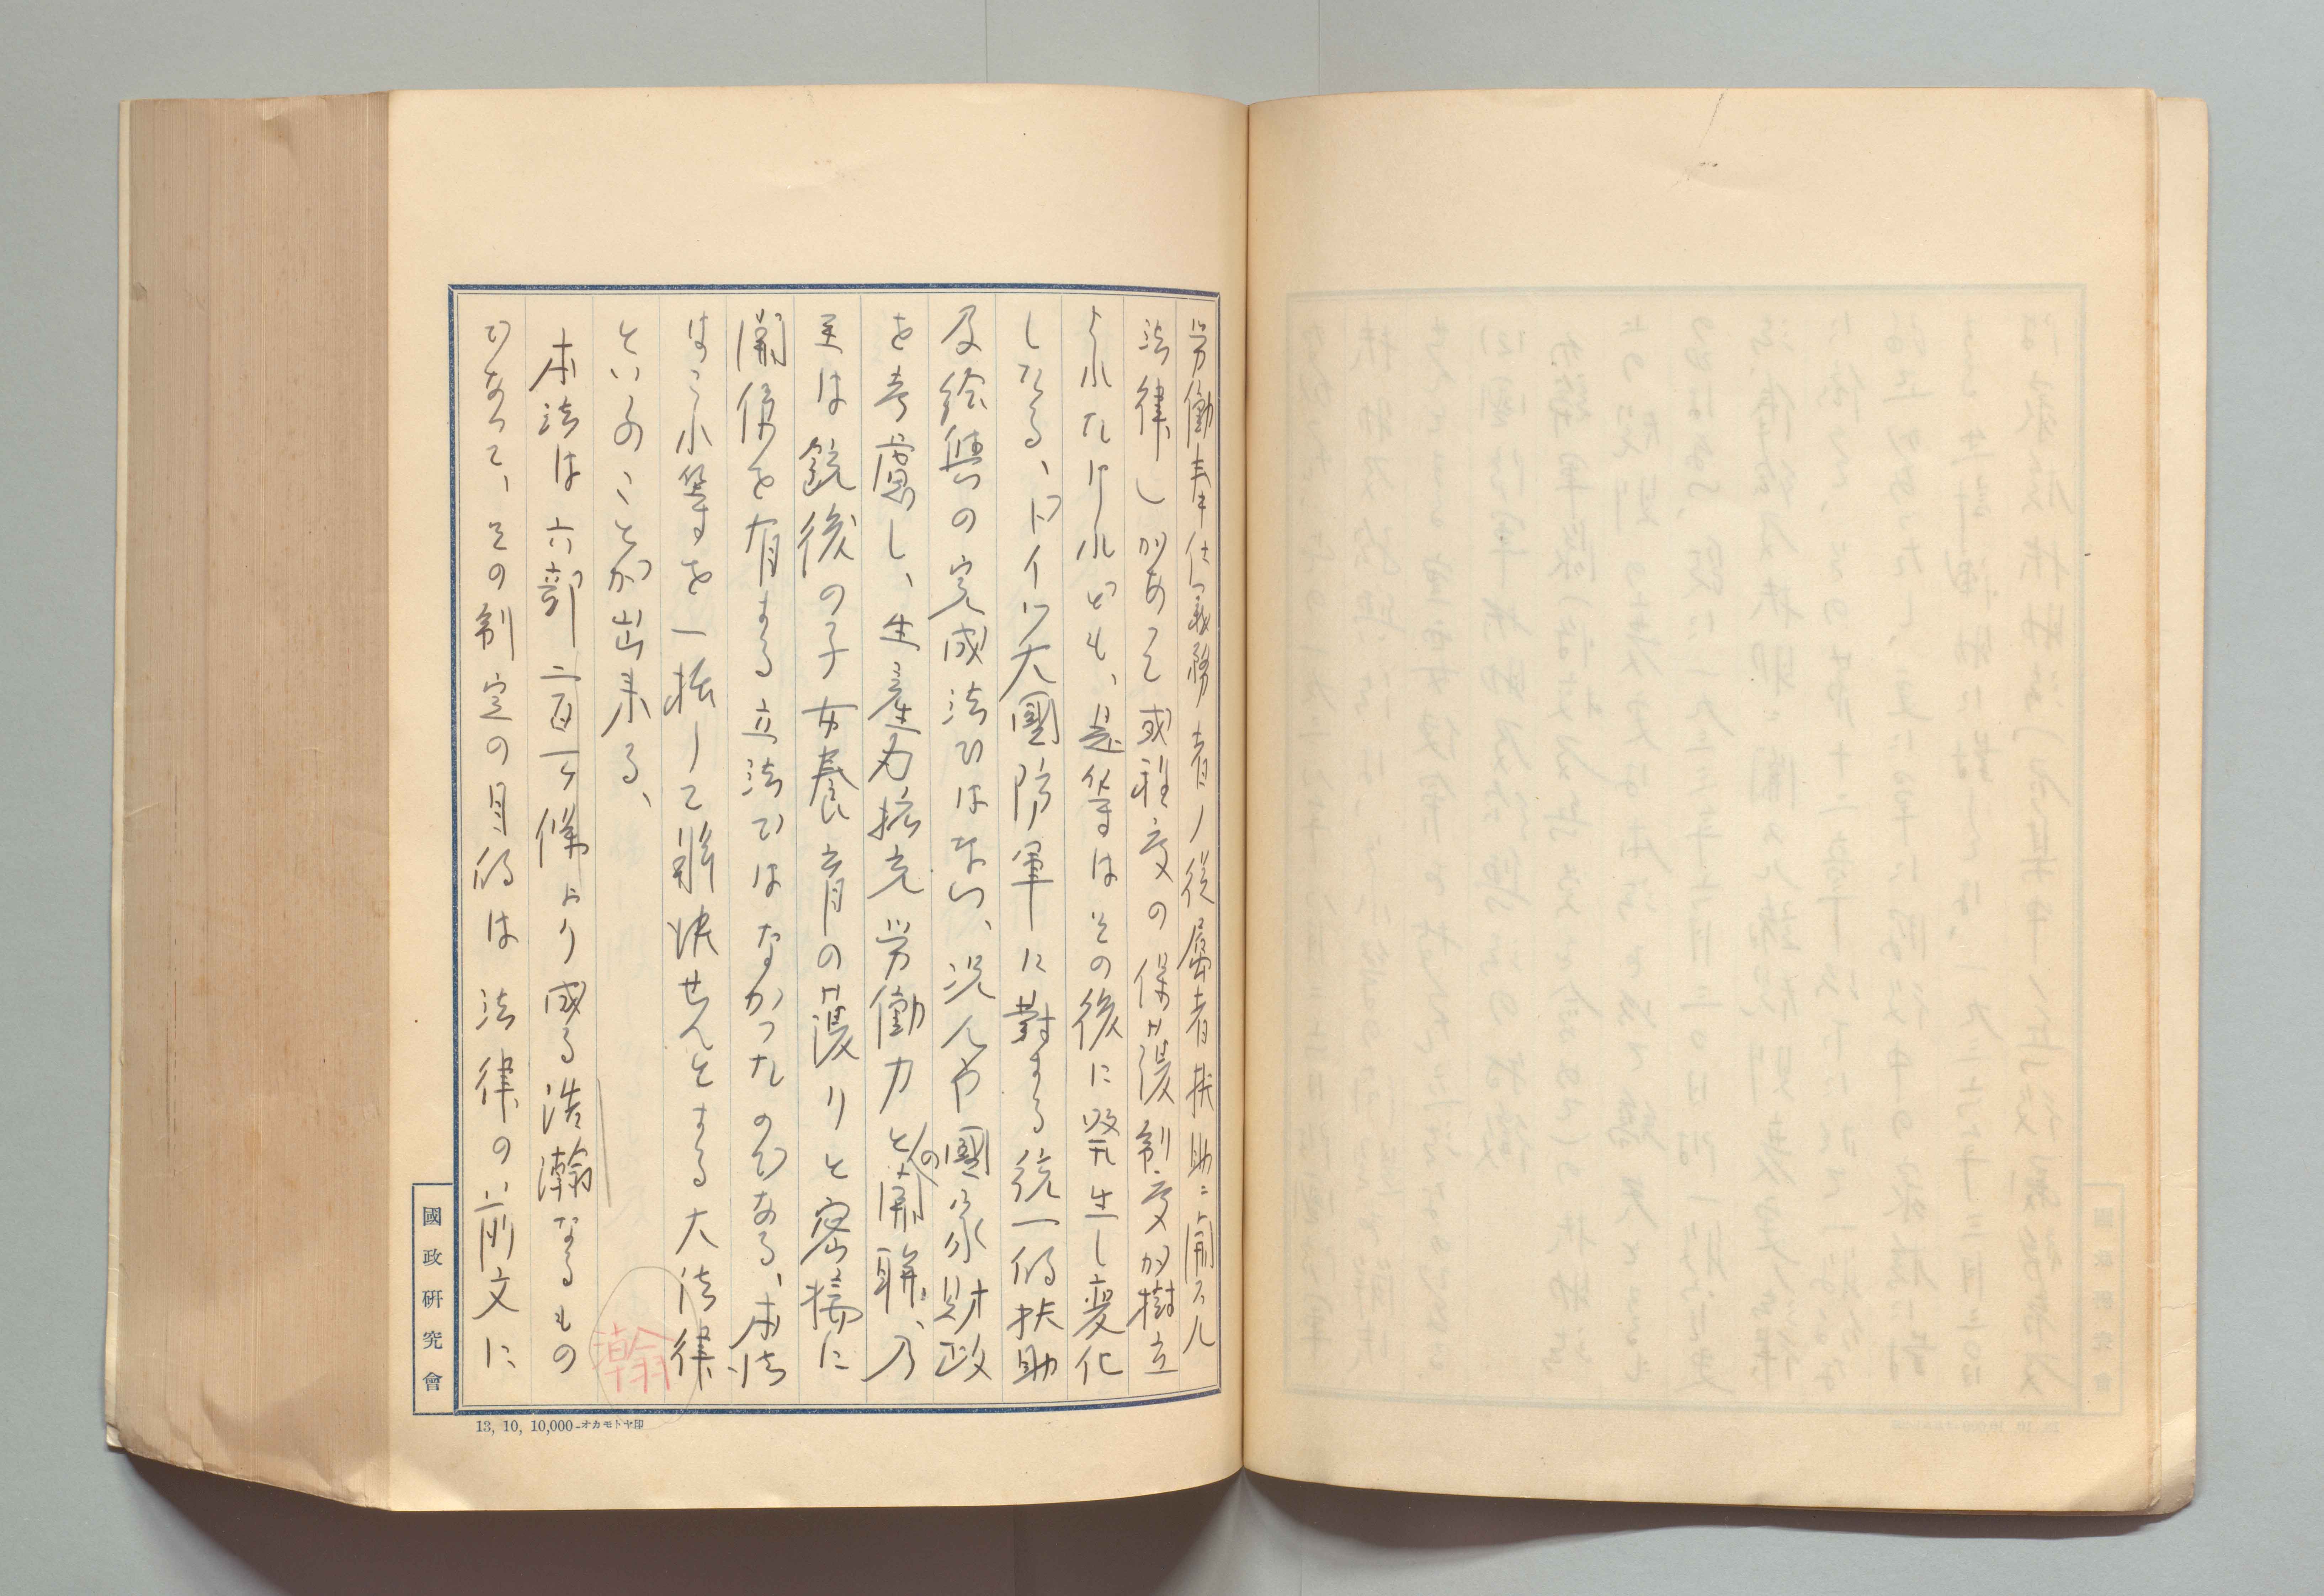 労働奉仕義務者ノ従属者扶助ニ関スル
法律しがあつて或程度の保護制度が樹立
されたけれども、是等はその後に発生し変化
しなる、ドイツ大國防軍に對する統一的扶助
及給與の完成法ではない、況んや國家財政
を考慮し、生産力拡充労働力との関聯、乃
至は銃後の子女養育の保護りと密接に
関係を有する立法ではなかつたのである、本法
はこれ等を一括して解決せんとする大法律
といふのことが出来る、
本法は六部二百一ヶ條より成る浩瀚なるもの
であつて、その制定の目的は法律の前文に
瀚
國政研究會
13, 10, 10,000-オカモトヤ印